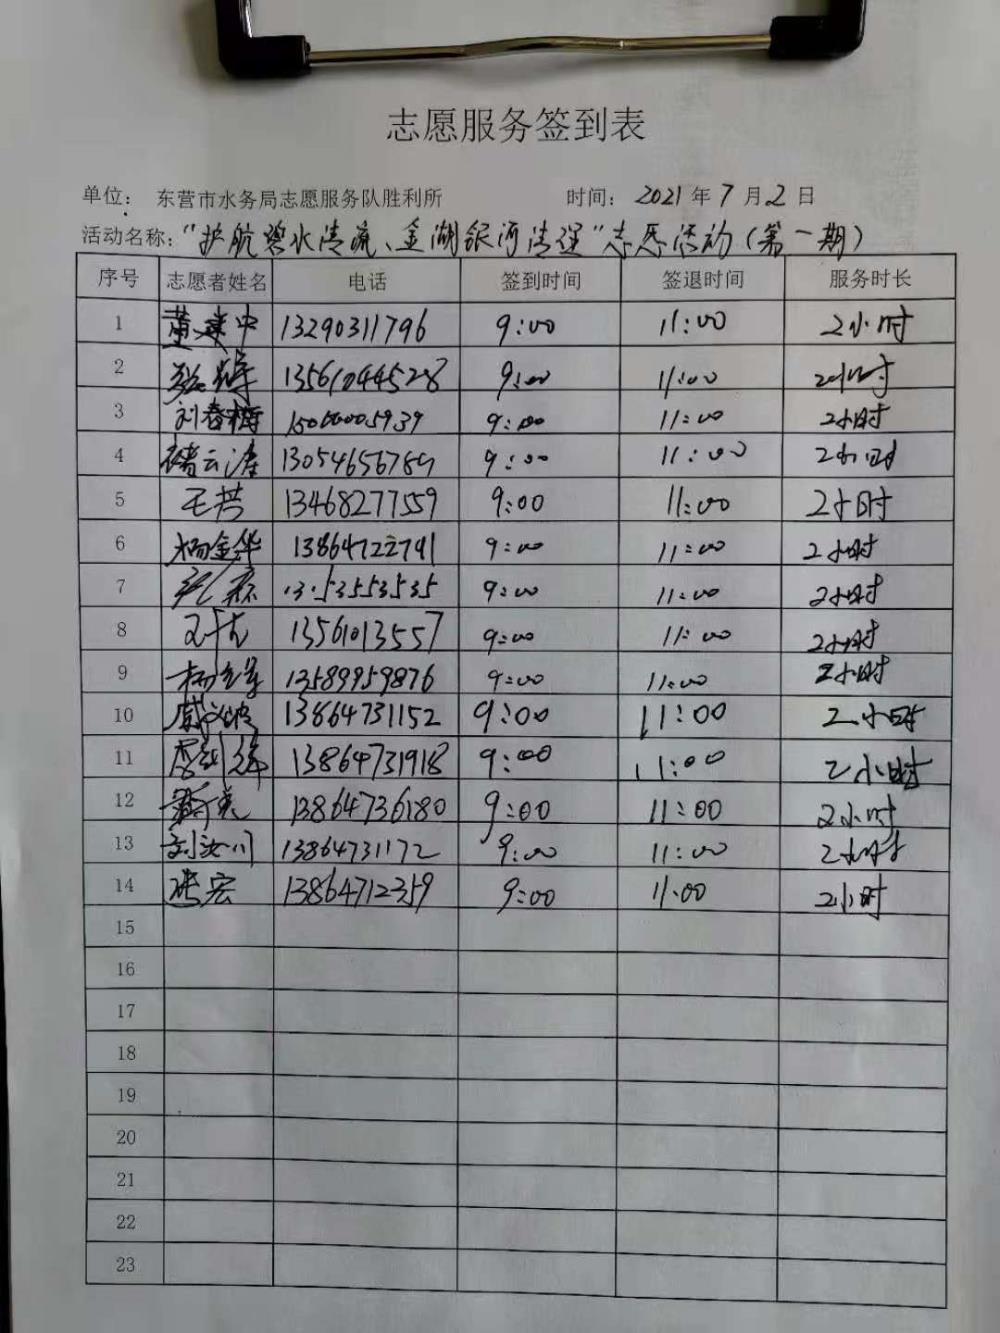 志愿服务签到表
单位： 东营市水务局志愿服务队胜利所 时间： 2021 年 7 月 2 日
活动名称："护航碧水清流、金湖银河清理"志愿活动(第一期)
序号 志愿者姓名 电话 签到时间 签退时间 服务时长
1 董建中 13290311796 9:00 11:00 2小时
2 13561044528 9:00 11:00 2小时
3 刘春梅 9:00 11:00 2小时
4 褚云涛 13054656789 9:00 11:00 2小时
5 王芸 13468277559 9:00 11:00 2小时
6 杨金华 13864722791 9:00 11:00 2小时
7 9:00 11:00 2小时
8 13561013557 9:00 11:00 2小时
9 13589959876 9:00 11:00 2小时
10 13864731152 9:00 11:00 2小时
11 13864731918 9:00 11:00 2小时
12 13864736180 9:00 11:00 2小时
13 刘汝川 13864731172 9:00 11:00 2小时
14 张宏 13864712359 9:00 11:00 2小时
15
16
17
18
19
20
21
22
23